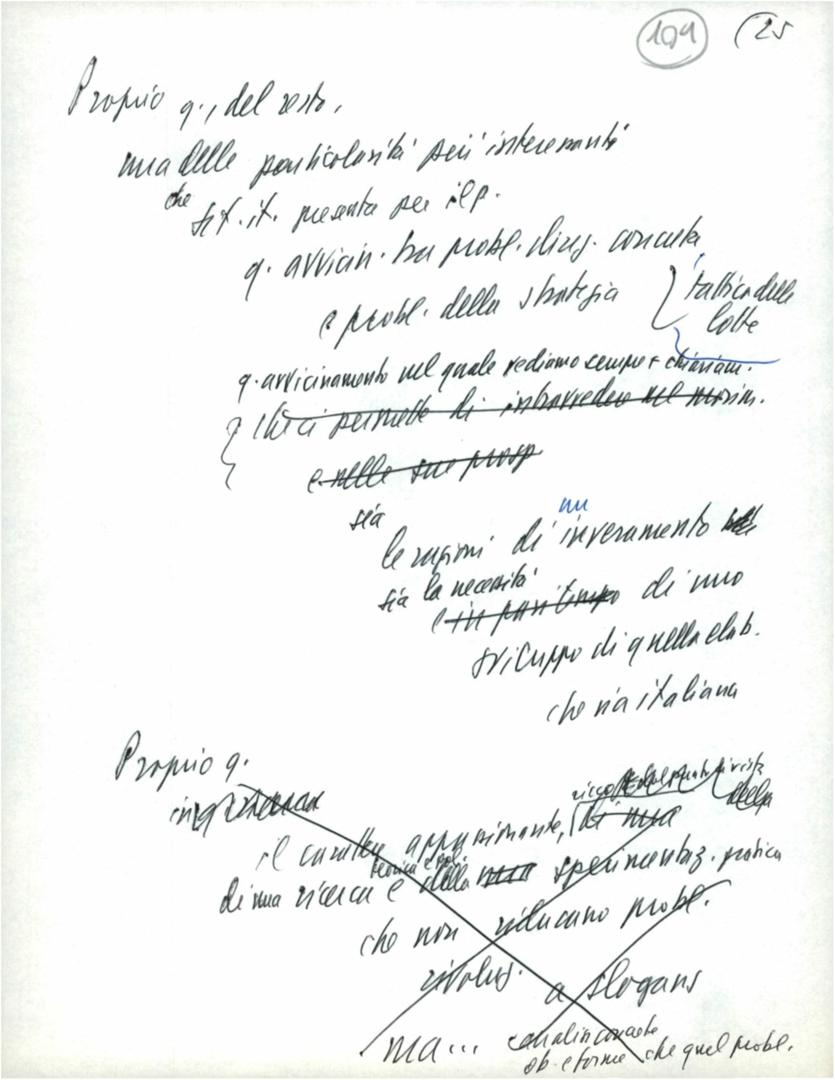 194 (25
Proprio q., del resto,
una delle particolarità più interessanti
che
sit. it. presenta per il p.
q. avvicin. tra probl. direz. concreta
e probl. della strategia { tattica delle
lotte
q. avvicinamento nel quale vediamo sempre + chiaram.
che ci permette di intravvedere nel movim.
e nelle sue prosp
sia un
le ragioni di inveramento
sia la necessità
e in pari tempo di uno
sviluppo di quella elab.
che via italiana
Proprio q.
in q
il carattere appassionante, di una della
teorica e pol.
di una ricerca e della una sperimentaz. pratica
che non riducano probl.
rivoluz. a slogans
ma... concrete
ob. e forme che quel probl.